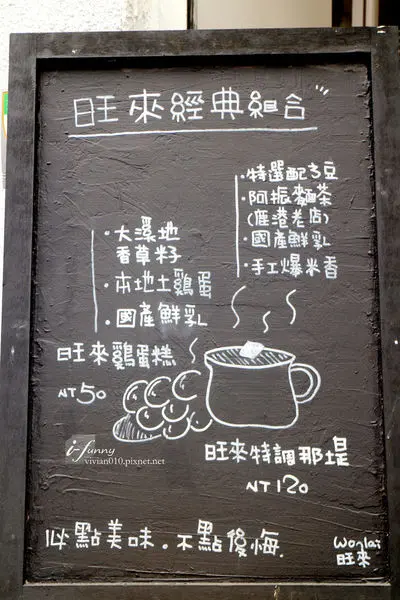 旺來經典組合
·特選配方豆
·阿振麵茶
(鹿港老店)
·國產鮮乳
·手工爆米香
·大溪地
香草籽
·本地土雞蛋
·國產鮮乳
旺來雞蛋糕
NT50
旺來特調那堤
NT120
i-funny
vivian010.pixnet.net
必點美味.不點後悔.
Wonlai
旺來